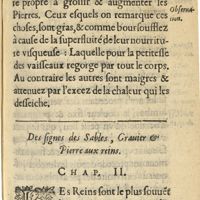 le propre à grossir & augmenter les
Pierres. Ceux esquels on remarque ces
choses, sont gras, & comme boursouflez
à cause de la superfluité de leur nourritu-
re visqueuse : Laquelle pour la petitesse
des vaisseaux regorge par tout le corps.
Au contraire les autres sont maigres &
attenuez par l'excez de la chaleur qui les
desseiche.
Observa-
tion.
Des signes des Sables, Gravier &
Pierre aux reins.
CHAP. II.
Es Reins sont le plus souvēt